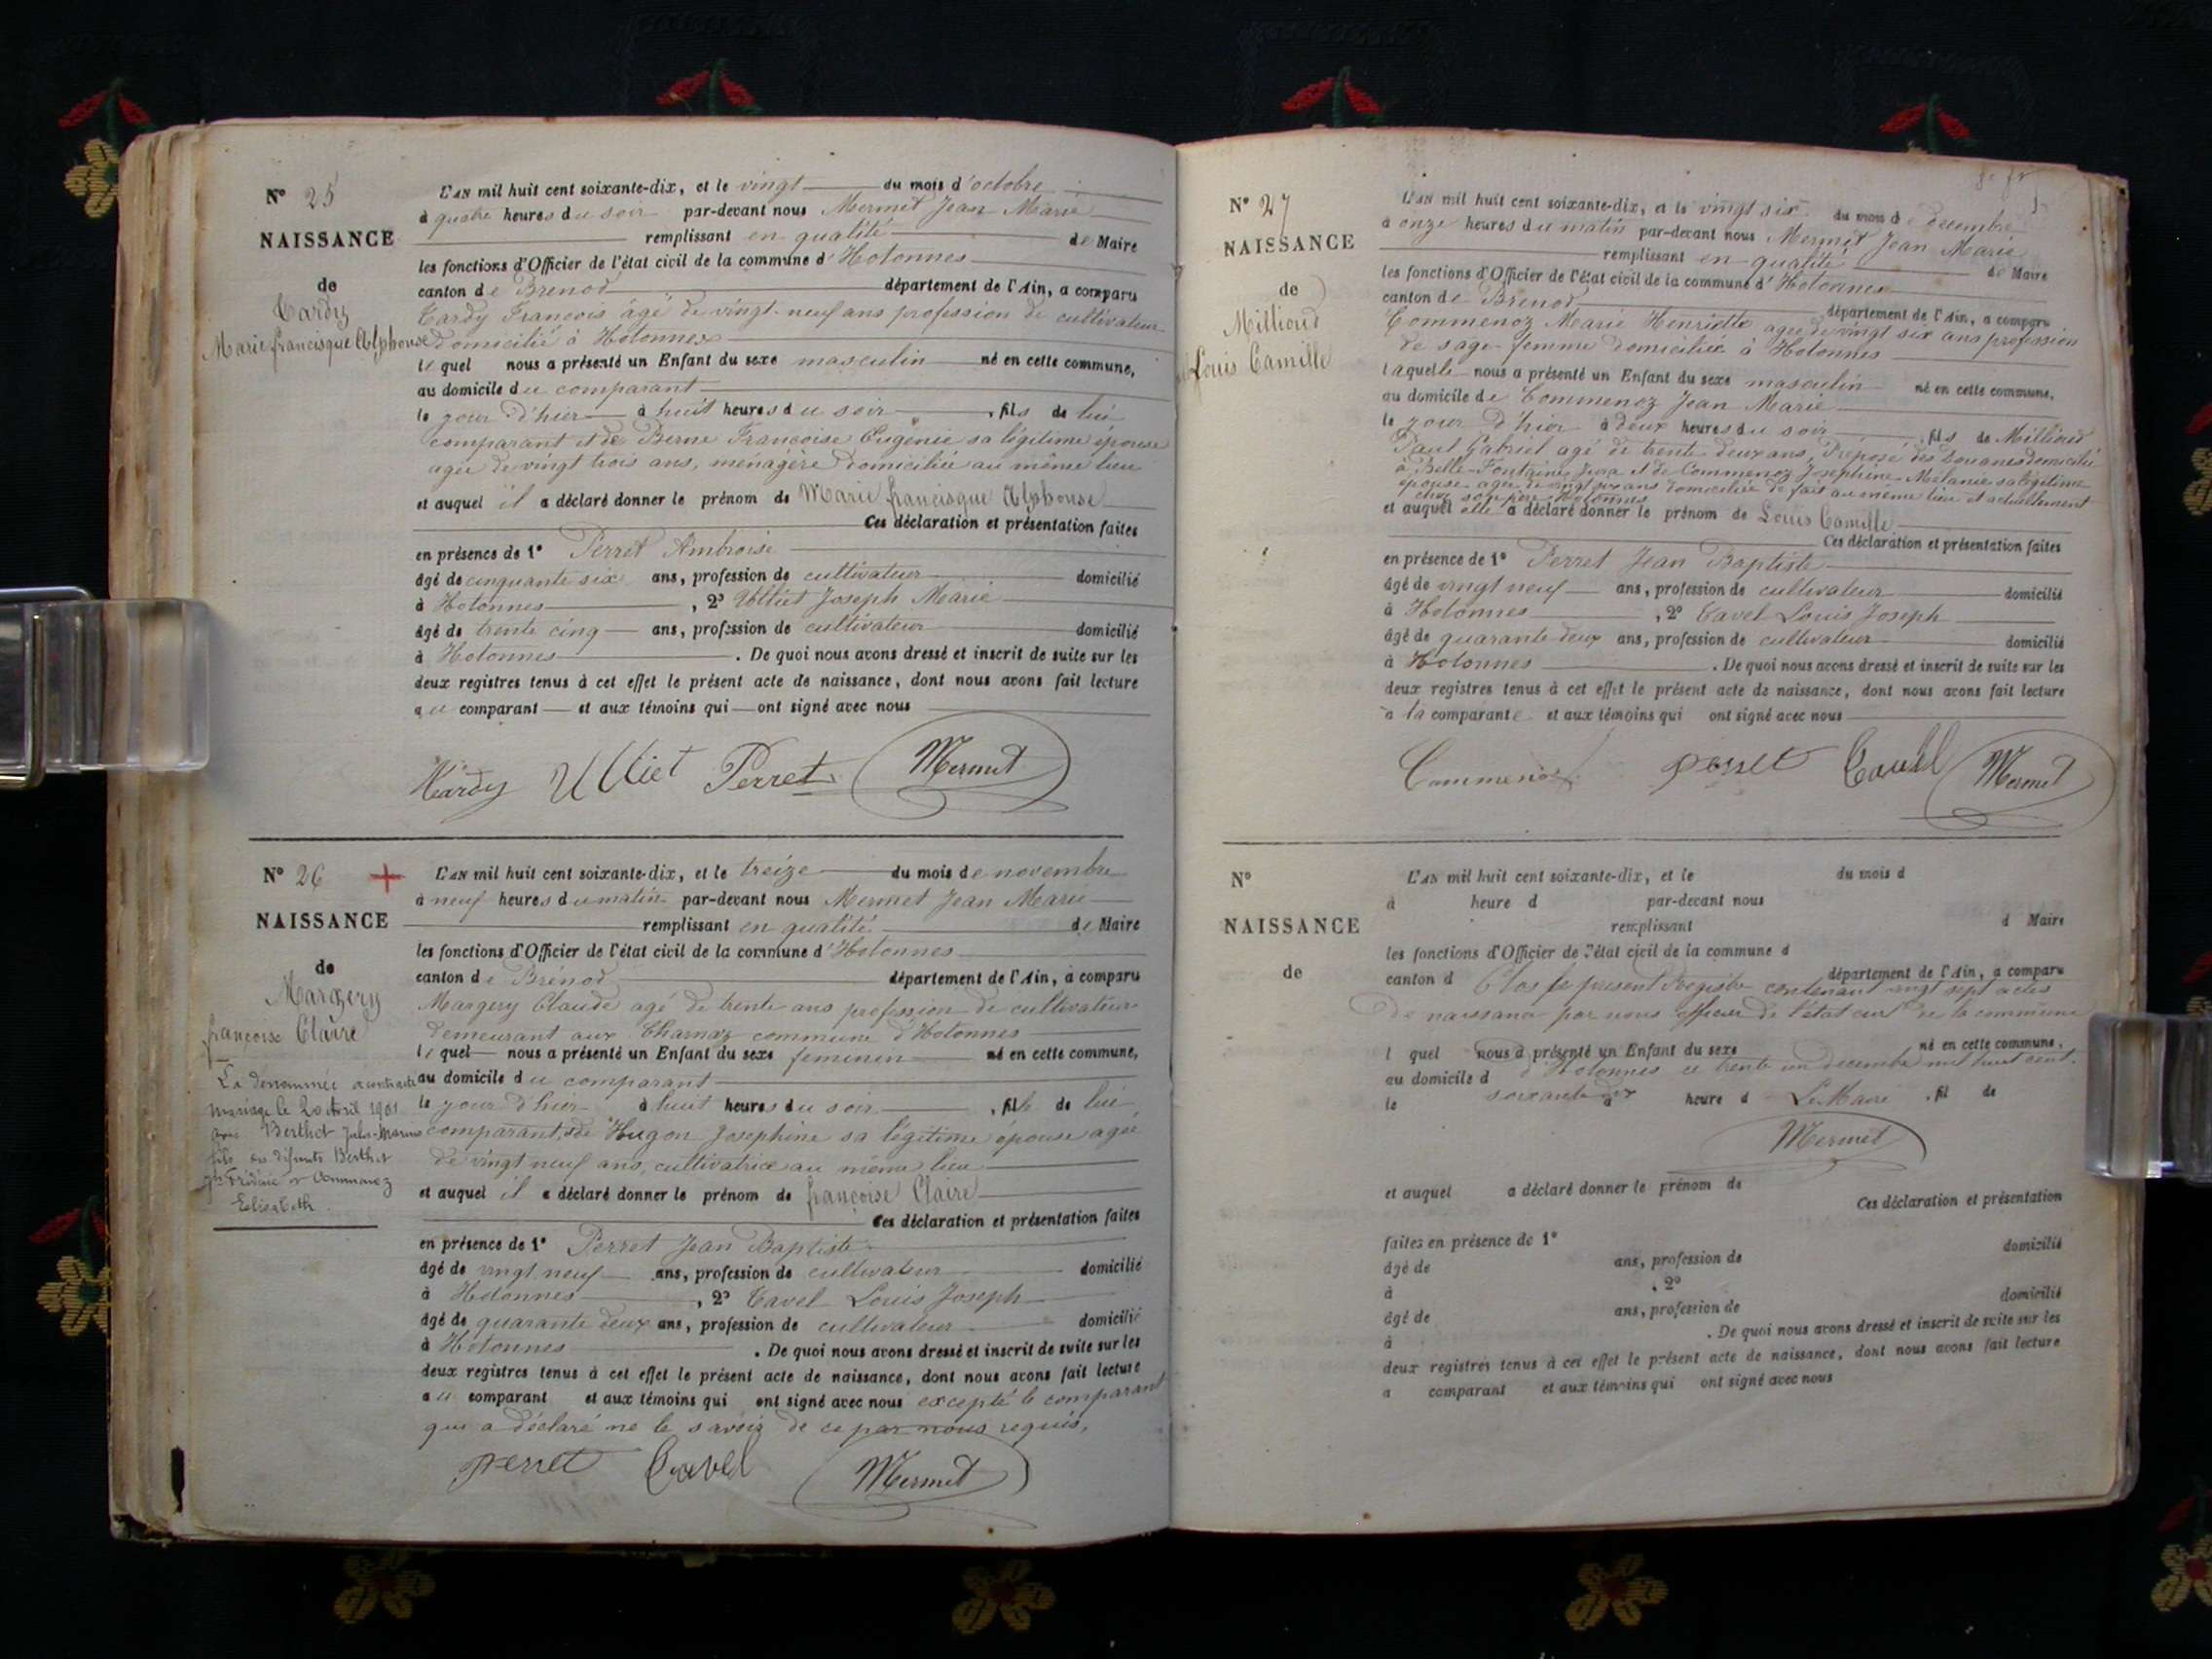 N° 25
NAISSANCE
de
Tardy
Marie francisque Alphonse
L'AN mil huit cent soixante-dix, et le vingt du mois d'octobre
à quatre heures du soir par-devant nous Mermet Jean Marie
remplissant en qualité de Maire
les fonctions d'Officier de l'état civil de la commune d'Hotonnes
canton de Brenod département de l'Ain, a comparu
Tardy Francois âgé de vingt-neuf ans profession de cultivateur
domicilié à Hotonnes
lequel nous a présenté un Enfant du sexe masculin né en cette commune,
au domicile du comparant
le jour d'hier à huit heures du soir, fils de lui
comparant et de Berne Francoise Eugénie sa légitime épouse
agée de vingt trois ans, ménagère domiciliée au même lieu
et auquel il a déclaré donner le prénom de Marie francisque Alphonse
Ces déclaration et présentation faites
en présence de 1° Perret Ambroise
âgé de cinquante six ans, profession de cultivateur domicilié
à Hotonnes, 2° Ulliet Joseph Marie
âgé de trente cinq ans, profession de cultivateur domicilié
à Hotonnes. De quoi nous avons dressé et inscrit de suite sur les
deux registres tenus à cet effet le présent acte de naissance, dont nous avons fait lecture
au comparant et aux témoins qui ont signé avec nous
Tardy Ulliet Perret Mermet
N° 26 +
NAISSANCE
de
Margery
françoise Claire
La dénommée a contracté
mariage le 20 Avril 1901
avec Berthet Jules-Marius
fils des défunts Berthet
Frédéric et Commenoz
Elisabeth.
L'AN mil huit cent soixante-dix, et le treize du mois de novembre
à neuf heures du matin par-devant nous Mermet Jean Marie
remplissant en qualité de Maire
les fonctions d'Officier de l'état civil de la commune d'Hotonnes
canton de Brénod département de l'Ain, a comparu
Margery Claude agé de trente ans profession de cultivateur
demeurant aux Tharnaz commune d'Hotonnes
lequel nous a présenté un Enfant du sexe feminin né en cette commune,
au domicile du comparant
le jour d'hier à huit heures du soir, fille de lui
comparant, et de Hugon Josephine sa légitime épouse agée
de vingt neuf ans, cultivatrice au même lieu
et auquel il a déclaré donner le prénom de françoise Claire
Ces déclaration et présentation faites
en présence de 1° Perret Jean Baptiste
âgé de vingt neuf ans, profession de cultivateur domicilié
à Hotonnes, 2° Tavel Louis Joseph
âgé de quarante deux ans, profession de cultivateur domicilié
à Hotonnes. De quoi nous avons dressé et inscrit de suite sur les
deux registres tenus à cet effet le présent acte de naissance, dont nous avons fait lecture
au comparant et aux témoins qui ont signé avec nous excepté le comparant
qui a déclaré ne le savoir de ce par nous requis,
perret Tavel Mermet
N° 27
NAISSANCE
de
Milliond
Louis Camille
L'AN mil huit cent soixante-dix, et le vingt six du mois de decembre
à onze heures du matin par-devant nous Mermet Jean Marie
remplissant en qualité de Maire
les fonctions d'Officier de l'état civil de la commune d'Hotonnes
canton de Brenod département de l'Ain, a comparu
Commenoz Marie Henriette agée de vingt six ans profession
de sage-femme domiciliée à Hotonnes
laquelle nous a présenté un Enfant du sexe masculin né en cette commune,
au domicile de Commenoz Jean Marie
le jour d'hier à deux heures du soir, fils de Milliond
Paul Gabriel agé de trente deux ans, Préposé des Douanes domicilié
à Belle-Fontaine Jura et de Commenoz Joséphine Mélanie sa légitime
épouse agée de vingt six ans domiciliée de fait au même lieu et actuellement
chez son père Hotonnes
et auquel elle a déclaré donner le prénom de Louis Camille
Ces déclaration et présentation faites
en présence de 1° Perret Jean Baptiste
âgé de vingt neuf ans, profession de cultivateur domicilié
à Hotonnes, 2° Tavel Louis Joseph
âgé de quarante deux ans, profession de cultivateur domicilié
à Hotonnes. De quoi nous avons dressé et inscrit de suite sur les
deux registres tenus à cet effet le présent acte de naissance, dont nous avons fait lecture
à la comparante et aux témoins qui ont signé avec nous
Commenoz perret Tavel Mermet
N°
NAISSANCE
de
L'AN mil huit cent soixante-dix, et le du mois d
à heure d par-devant nous
remplissant d Maire
les fonctions d'Officier de l'état civil de la commune d
canton d département de l'Ain, a comparu
Clos le present Registre contenant vingt sept actes
de naissance par nous officier de l'état civil de la commune
l quel nous a présenté un Enfant du sexe né en cette commune,
d'Hotonnes ce trente un decembre mil huit cent
au domicile d
soixante dix Le Maire
le à heure d, fil de
Mermet
et auquel a déclaré donner le prénom de
Ces déclaration et présentation
faites en présence de 1°
âgé de ans, profession de domicilié
à, 2°
âgé de ans, profession de domicilié
à. De quoi nous avons dressé et inscrit de suite sur les
deux registres tenus à cet effet le présent acte de naissance, dont nous avons fait lecture
a comparant et aux témoins qui ont signé avec nous